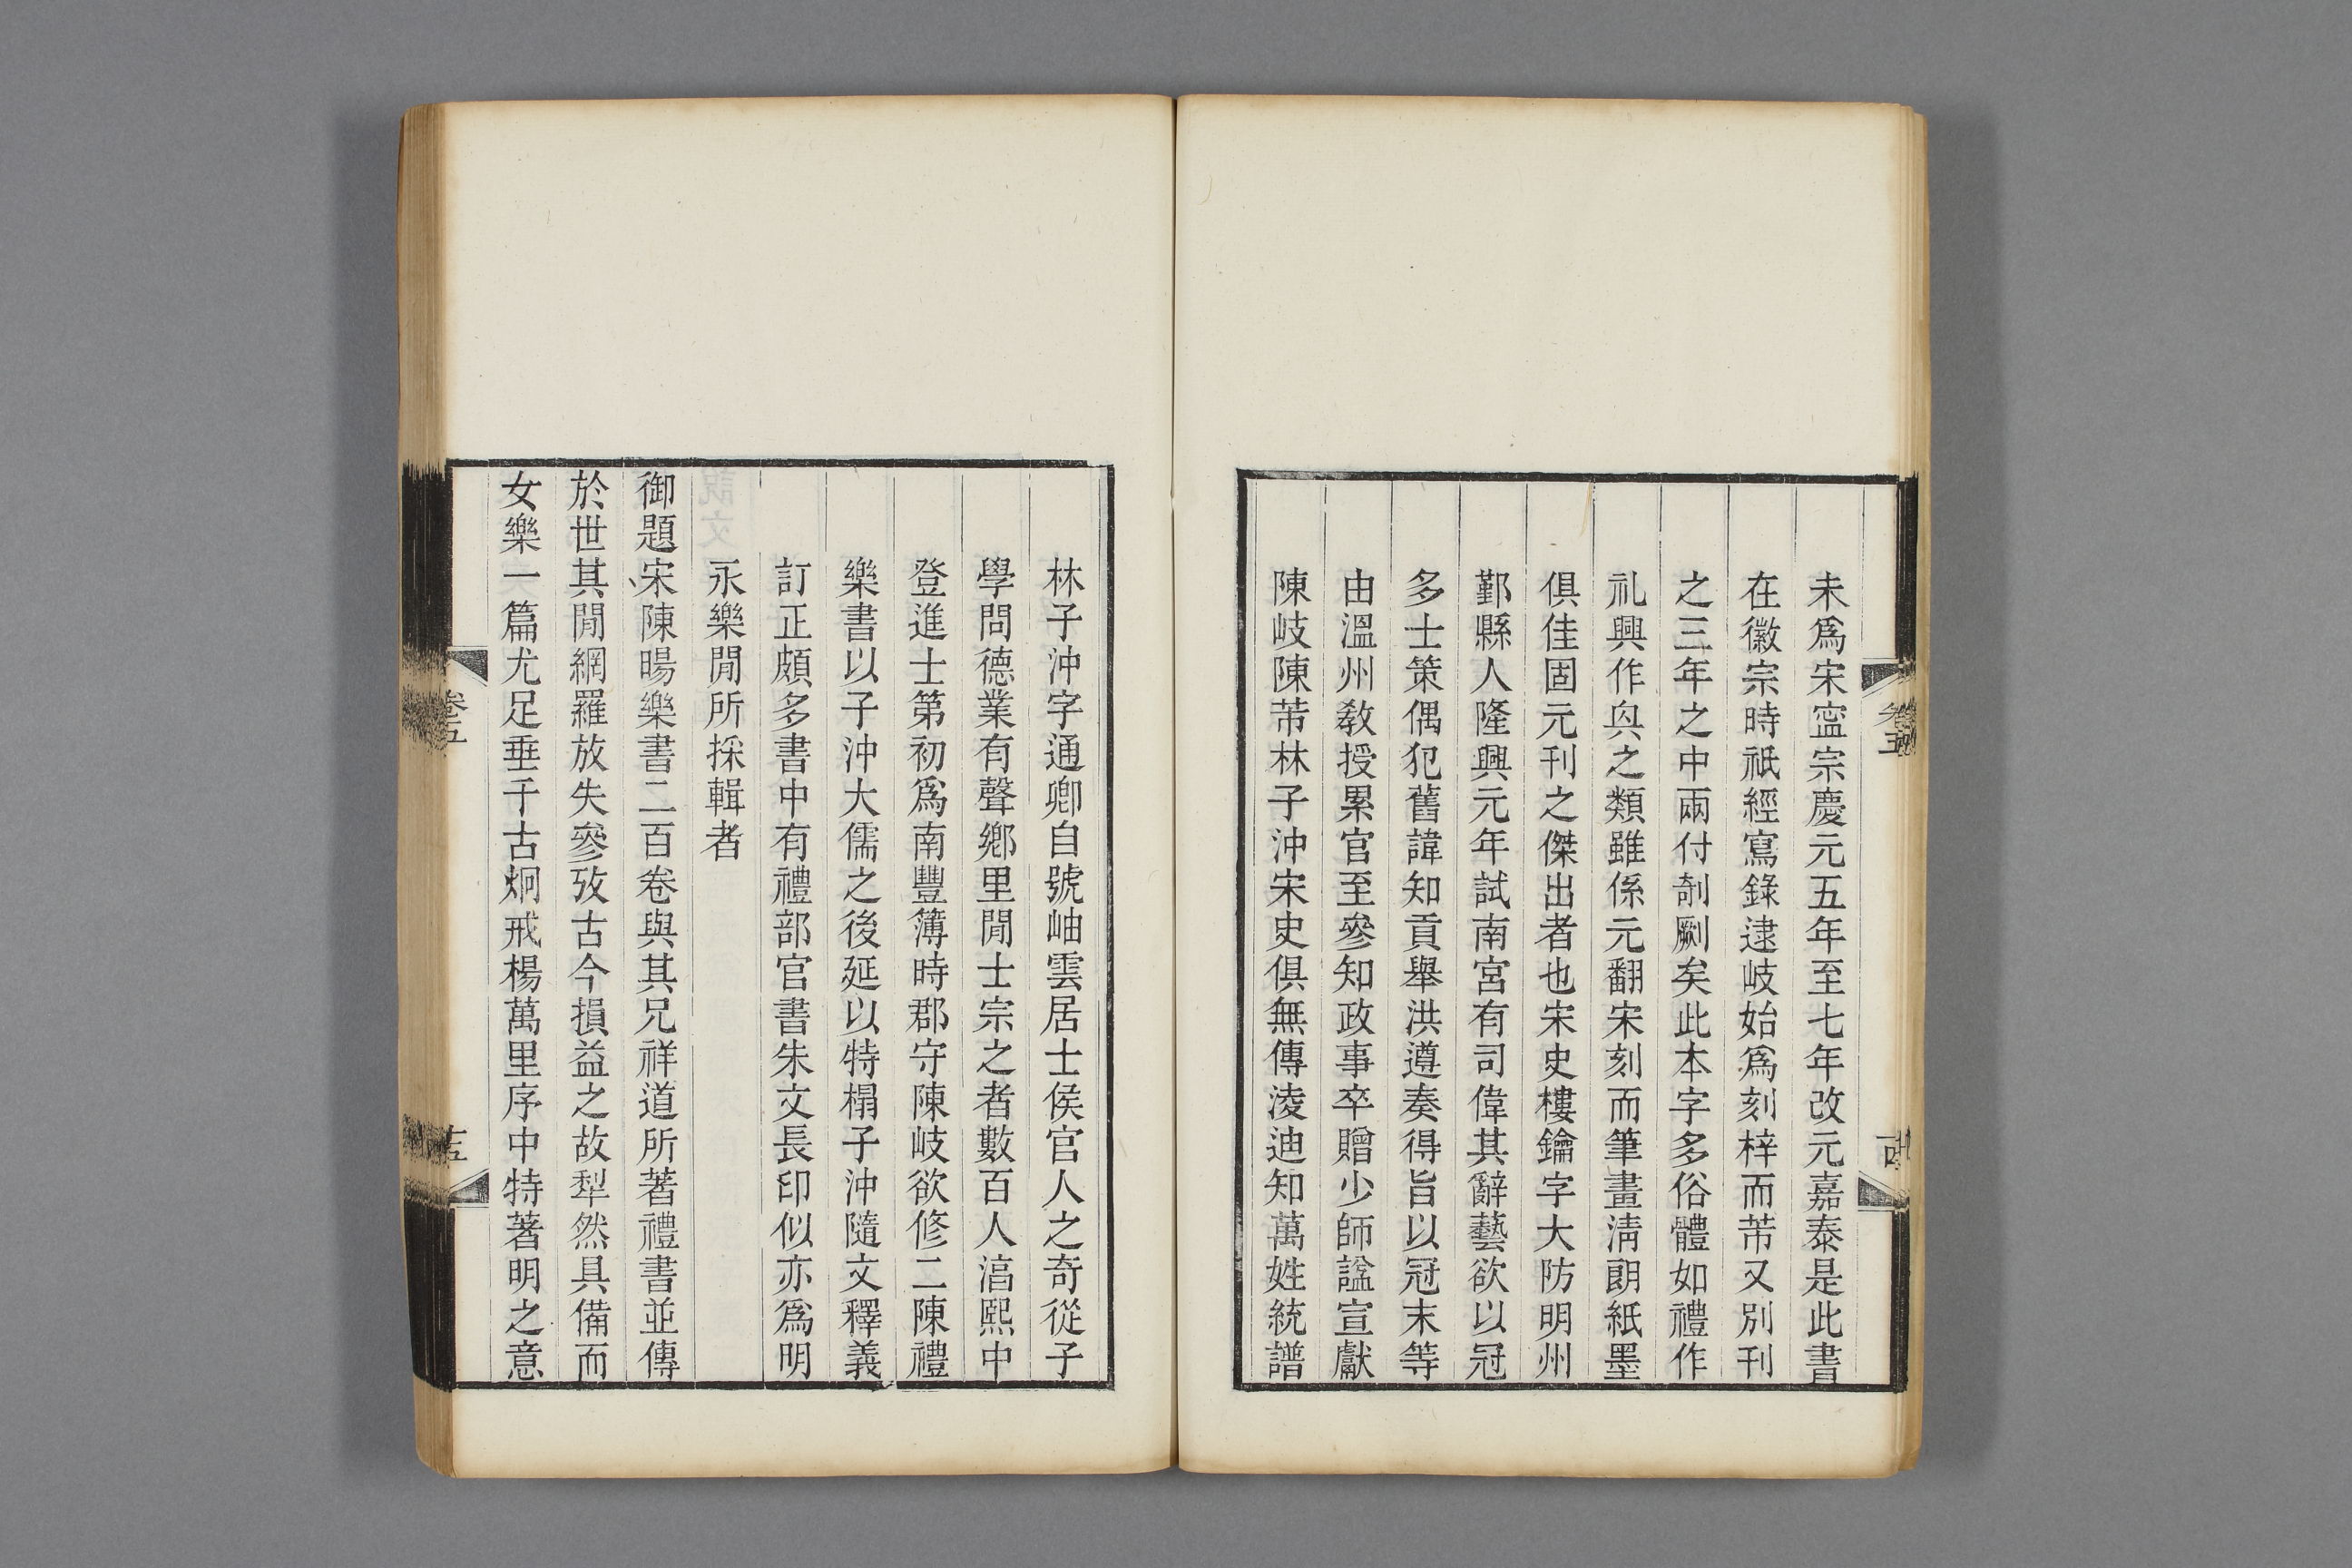 未爲宋寍宗慶元五年至七年改元嘉泰是此書
在徽宗時祇經寫錄逮岐始爲刻梓而芾又別刊
之三年之中兩付剞劂矣此本字多俗體如禮作
礼興作㒷之類雖係元翻宋刻而筆畫淸朗紙墨
俱佳固元刊之傑出者也宋史樓鑰字大防明州
鄞縣人隆興元年試南宮有司偉其辭藝欲以冠
多士策偶犯舊諱知貢舉洪遵奏得旨以冠末等
由溫州敎授累官至參知政事卒贈少師諡宣獻
陳岐陳芾林子沖宋史俱無傳淩迪知萬姓統譜
林子沖字通卿自號岫雲居士侯官人之奇從子
學問德業有聲鄉里閒士宗之者數百人湻熙中
登進士第初爲南豐簿時郡守陳岐欲修二陳禮
樂書以子沖大儒之後延以特榻子沖隨文釋義
訂正頗多書中有禮部官書朱文長印似亦爲明
永樂閒所採輯者
御題宋陳暘樂書二百卷與其兄祥道所著禮書並傳
於世其閒網羅放失參攷古今損益之故犁然具備而
女樂一篇尤足垂千古炯戒楊萬里序中特著明之意
卷五